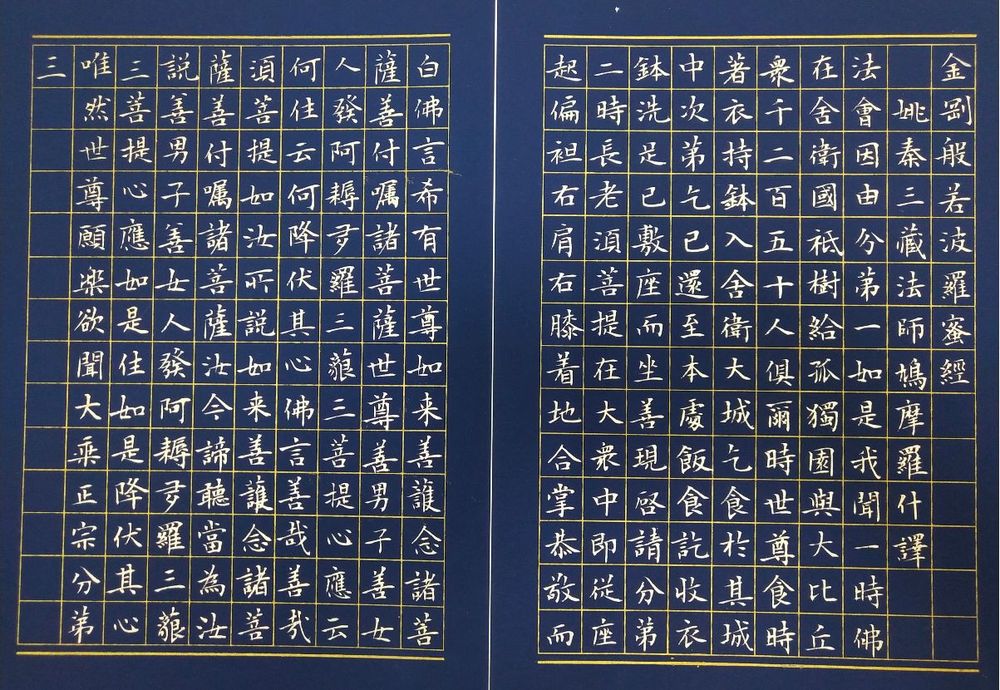 金剛般若波羅蜜經
姚秦三藏法師鳩摩羅什譯
法會因由分第一如是我聞一時佛
在舍衛國祇樹給孤獨園與大比丘
衆千二百五十人俱爾時世尊食時
著衣持鉢入舍衛大城乞食於其城
中次第乞已還至本處飯食訖收衣
鉢洗足已敷座而坐善現啓請分第
二時長老須菩提在大衆中即從座
起偏袒右肩右膝着地合掌恭敬而
白佛言希有世尊如来善護念諸菩
薩善付囑諸菩薩世尊善男子善女
人發阿耨多羅三藐三菩提心應云
何住云何降伏其心佛言善哉善哉
須菩提如汝所說如来善護念諸菩
薩善付囑諸菩薩汝今諦聽當為汝
說善男子善女人發阿耨多羅三藐
三菩提心應如是住如是降伏其心
唯然世尊願樂欲聞大乗正宗分第
三